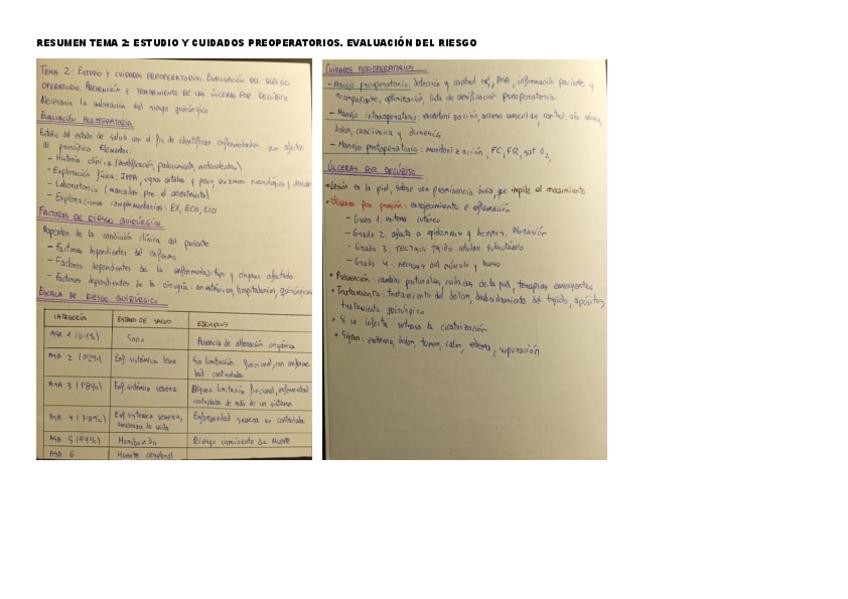 RESUMEN TEMA 2: ESTUDIO Y CUIDADOS PREOPERATORIOS. EVALUACIÓN DEL RIESGO
TEMA 2: ESTUDIO Y CUIDADOS PREOPERATORIOS. EVALUACIÓN DEL RIESGO
OPERATORIO. PREVENCIÓN Y TRATAMIENTO DE LAS ÚLCERAS POR DECÚBITO
Necesaria la valoración del riesgo quirúrgico
EVALUACIÓN PREOPERATORIA
Estudio del estado de salud con el fin de identificar enfermedades que afecten
al pronóstico. Elementos:
- Historia clínica (identificación, padecimiento, antecedentes)
- Exploración física: IPPA, signos vitales y peso, examen neurológico y
- Laboratorio (marcados por el anestesista)
- Exploraciones complementarias: RX, ECG, ECO
FACTORES DE RIESGO QUIRÚRGICO
Dependen de la condición clínica del paciente
- Factores dependientes del enfermo
- Factores dependientes de la enfermedad: tipo y órganos afectado
- Factores dependientes de la cirugía: anestésicos, hospitalarios, quirúrgicos
ESCALA DE RIESGO QUIRÚRGICO
CATEGORÍA ESTADO DE SALUD EJEMPLOS
ASA 1 Sano Ausencia de alteración orgánica
ASA 2 Enf. sistémica leve Sin limitación funcional, con enferme
dad controlada
ASA 3 Enf. sistémica severa Alguna limitación funcional, enfermedad
controlada de más de un sistema
ASA 4 Enf sistémica severa, Enfermedad severa no controlada
amenaza la vida
ASA 5 Moribundo Riesgo inminente de muerte
ASA 6 Muerte cerebral
CUIDADOS PERIOPERATORIOS
- Manejo preoperatorio: detección y control información paciente y
acompañante, optimización, lista de verificación preoperatoria
- Manejo intraoperatorio: monitorización, acceso vascular, control vía aérea,
dolor, conciencia y diuresis
- Manejo postoperatorio: Monitorización, FC, FR, sat O2,
ÚLCERAS POR DECÚBITO
• Lesión en la piel, sobre una prominencia ósea, que impide el movimiento
• Úlceras por presión: enrojecimiento e inflamación
- Grado 1: eritema cutáneo
- Grado 2: afecta a epidermis y dermis. Ulceración
- Grado 3: necrosis tejido celular subcutáneo
- Grado 4: necrosis del músculo y hueso
• Prevención: cambios posturales, cuidados de la piel, terapias emergentes
• Tratamiento: tratamiento del dolor, desbridamiento del tejido, apósitos,
tratamiento quirúrgico
• Si se infecta retrasa la cicatrización
• Signos: eritema, dolor, tumor, calor, edema, supuración